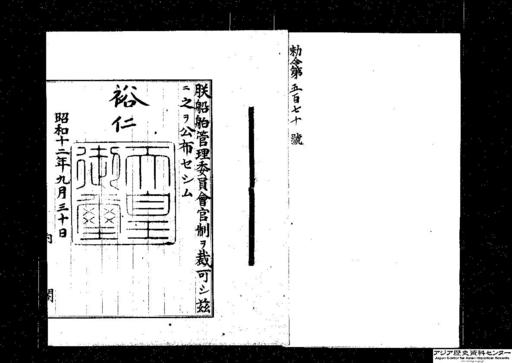 勅令第五百七十號
朕船舶管理委員會官制ヲ裁可シ茲
ニ之ヲ公布セシム
裕仁
天皇御璽
昭和十二年九月三十日
内閣
アジア歴史資料センター
Japan Center for Asian Historical Records